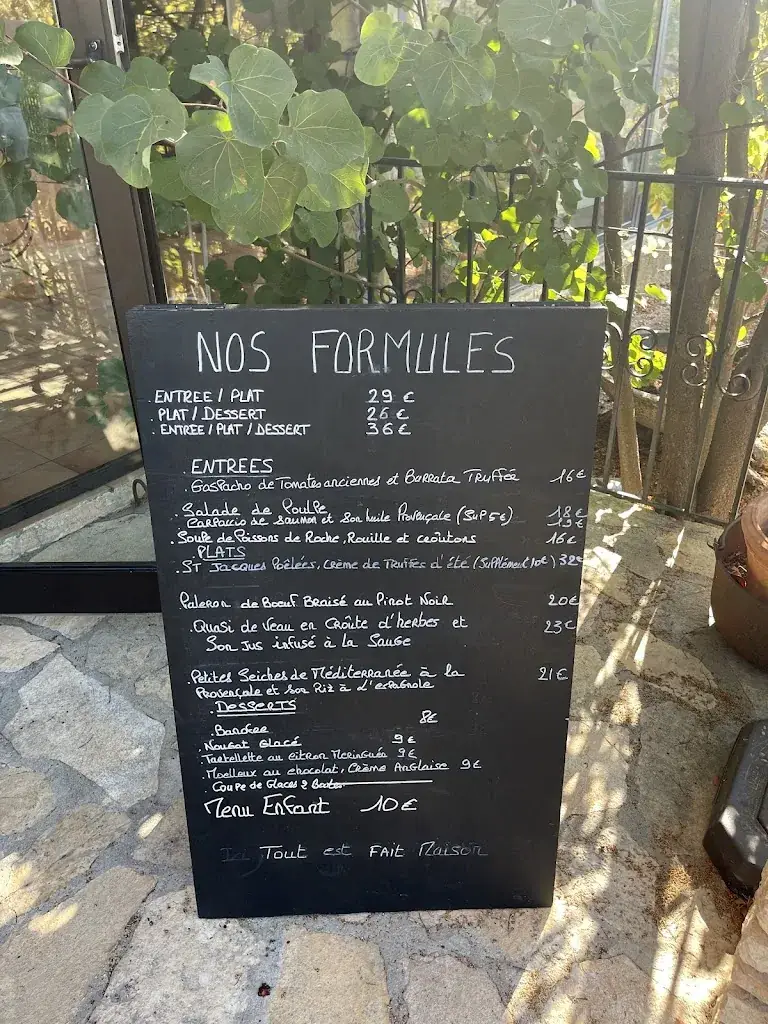 NOS FORMULES
. ENTREE / PLAT 29 €
. PLAT / DESSERT 26 €
. ENTREE / PLAT / DESSERT 36 €
. ENTREES
. Gaspacho de Tomates anciennes et Burrata Truffée 16€
. Salade de Poulpe 18€
. Carpaccio de Saumon et son huile Provençale (Sup 5€) 19€
. Soupe de Poissons de Roche, Rouille et croûtons 16€
. PLATS
. ST Jacques Poêlées, crème de Truffes d'été (Supplément 10€) 32€
Paleron de Boeuf Braisé au Pinot Noir 20€
. Quasi de Veau en Croûte d'herbes et 23€
Son jus infusé à la Sauge
Petites Seiches de Méditerranée à la 21€
. Provençale et son Riz à l'espagnole
. DESSERTS
8€
. Nougat Glacé 9€
. Tartellette au citron Meringuée 9€
. Moelleux au chocolat, Crème Anglaise 9€
. Coupe de Glaces 2
Menu Enfant 10€
Ici Tout est FAIT Maison